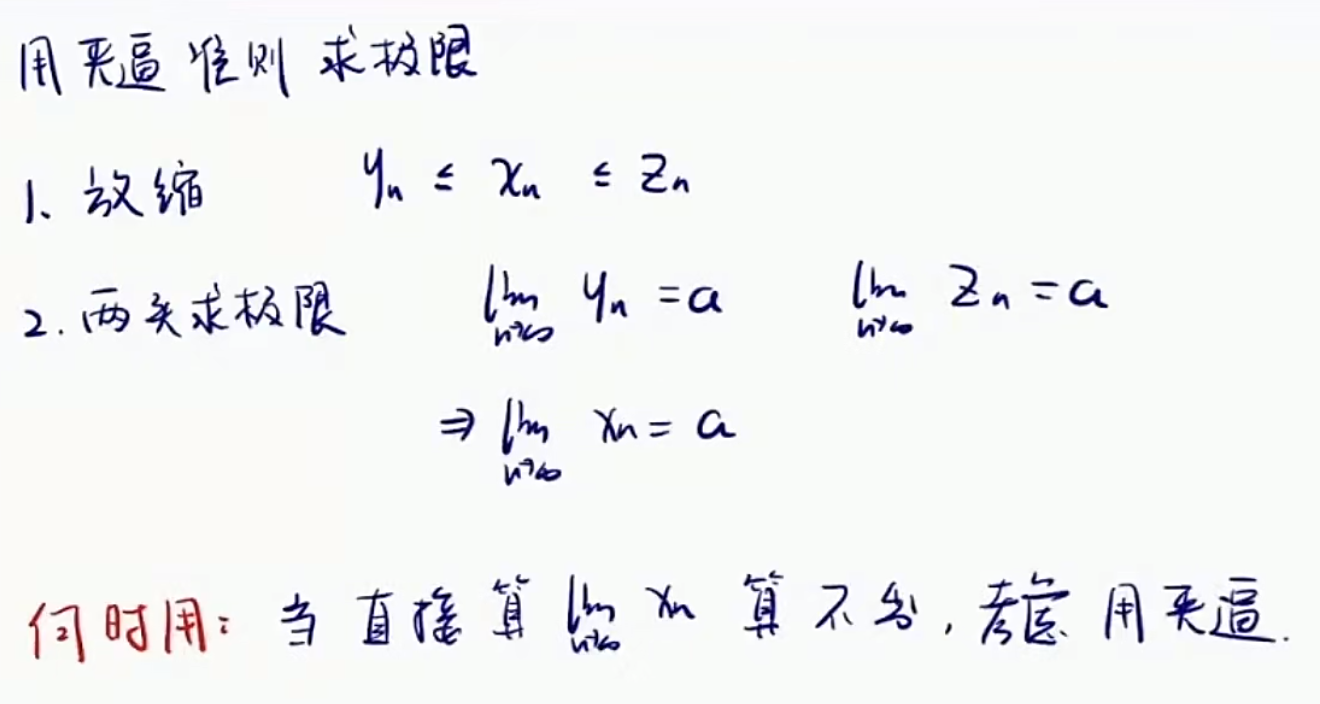 用夹逼准则 求极限
1、放缩 yₙ ≤ xₙ ≤ zₙ
2. 两头求极限 lim n→∞ yₙ = a lim n→∞ zₙ = a
⇒ lim n→∞ xₙ = a
何时用: 当直接算 lim n→∞ xₙ 算不出, 考虑用夹逼.